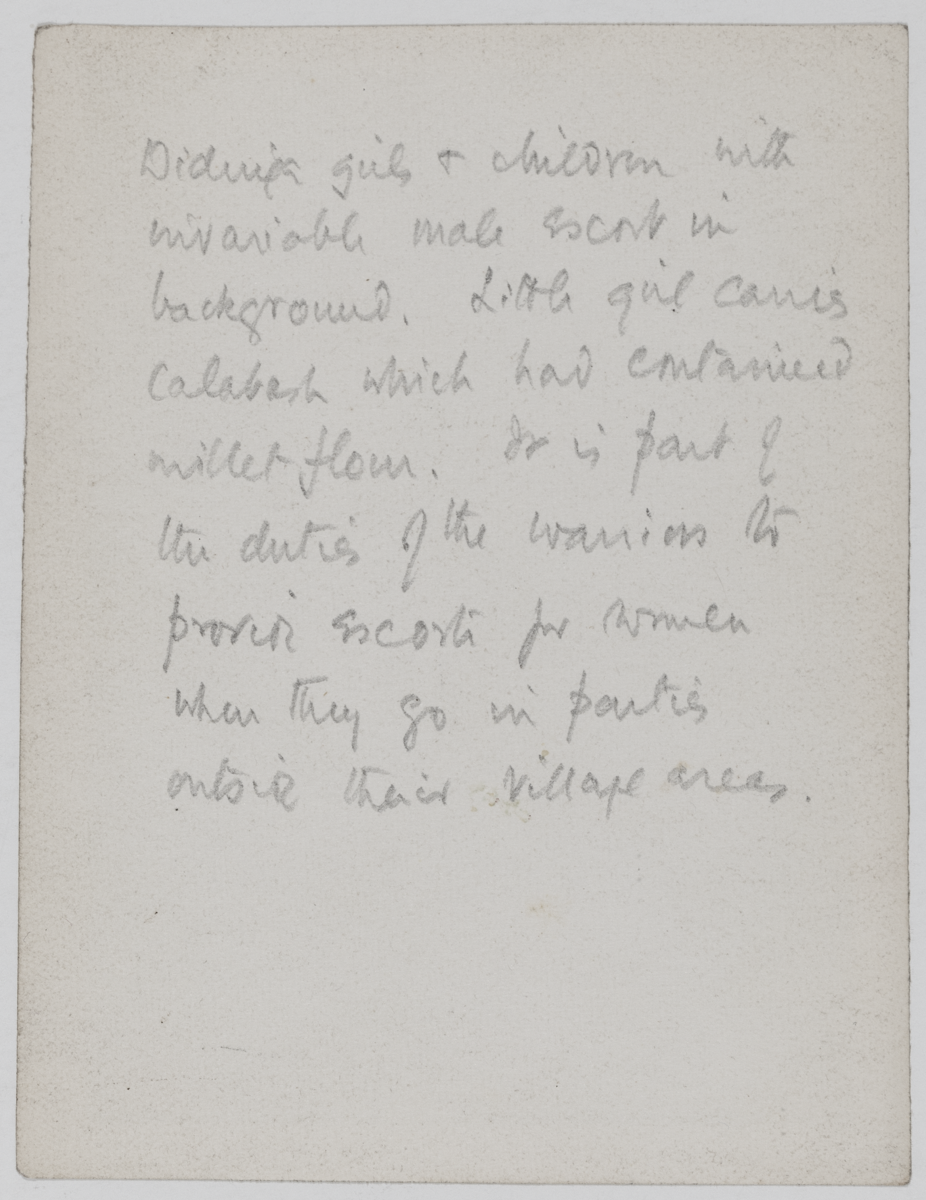 Didinga girls + children with
invariable male escort in
background. Little girl carries
Calabash which had contained
millet flour. It is part of
the duties of the warriors to
provide escorts for women
when they go in parties
outside their village areas.